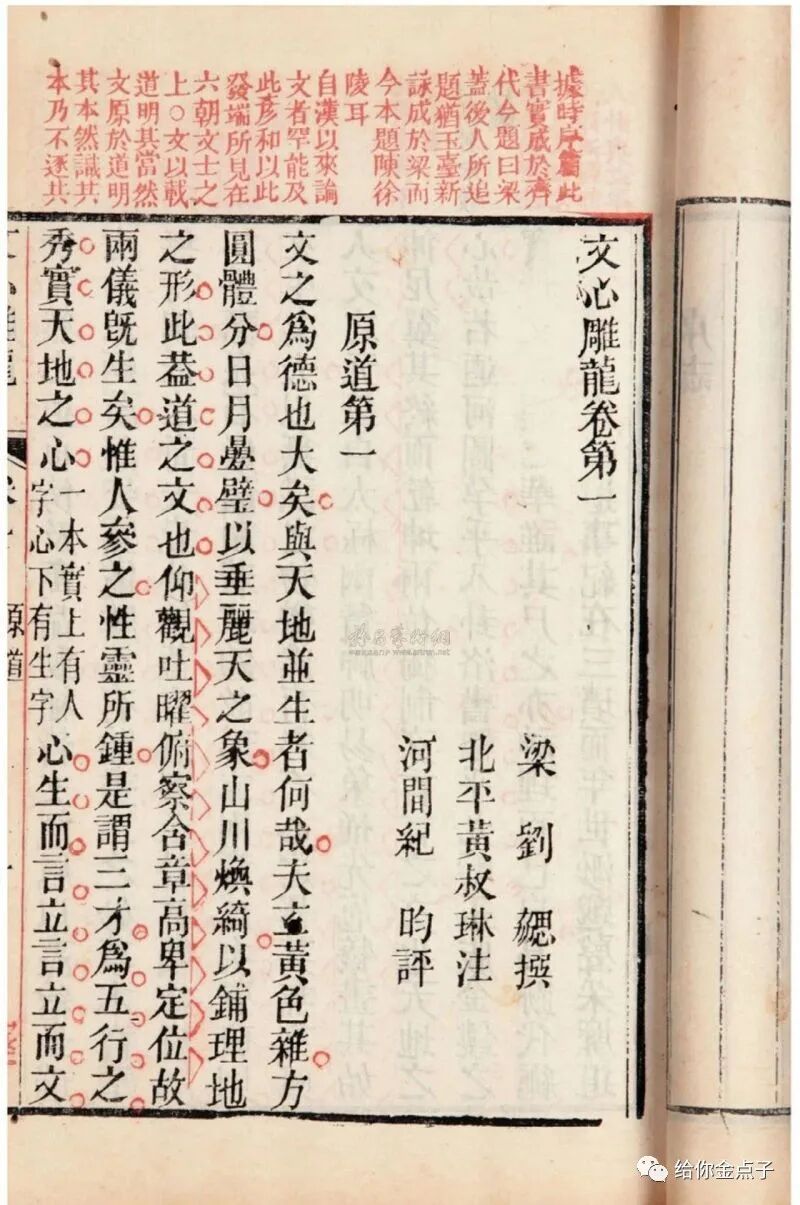 據時序篇此
書實成於齊
代今題曰梁
蓋後人所追
題猶玉臺新
詠成於梁而
今本題陳徐
陵耳
自漢以來論
文者罕能及
此彥和以此
發端所見在
六朝文士之
上○文以載
道明其當然
文原於道明
其本然識其
本乃不逐其
文心雕龍卷第一
梁 劉 勰撰
北平黃叔琳注
河間紀 昀評
原道第一
文之爲德也大矣與天地並生者何哉夫玄黃色雜方
圓體分日月疊璧以垂麗天之象山川煥綺以鋪理地
之形此葢道之文也仰觀吐曜俯察含章高卑定位故
兩儀旣生矣惟人參之性靈所鍾是謂三才爲五行之
秀實天地之心一本實上有人
字心下有生字心生而言立言立而文
原道
给你金点子